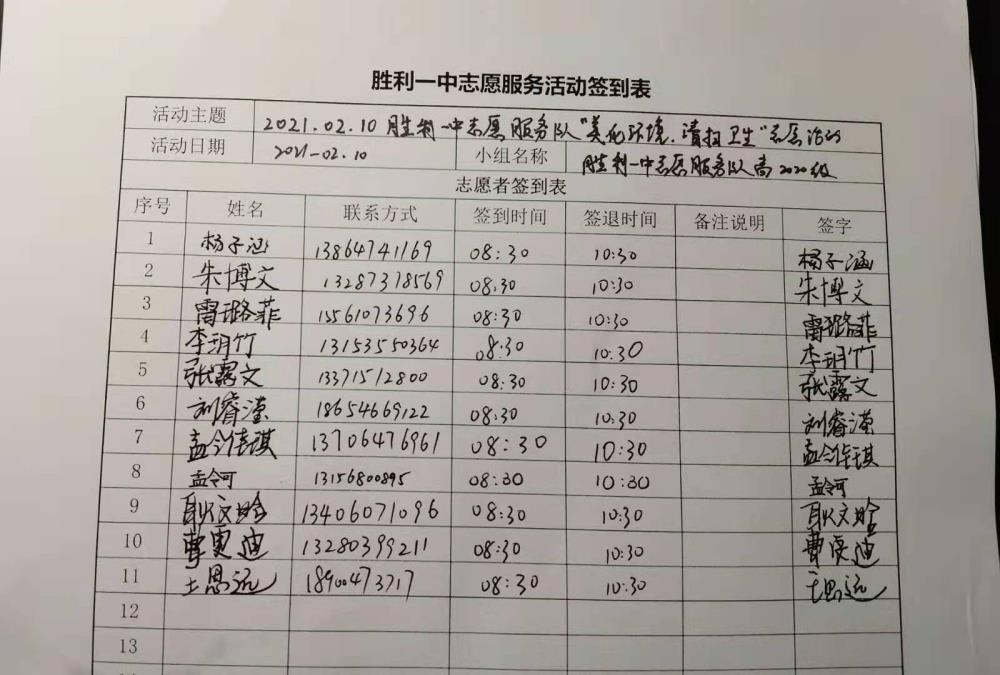 胜利一中志愿服务活动签到表
活动主题 2021.02.10 胜利一中志愿服务队"美化环境.清扫卫生"志愿活动
活动日期 2021-02.10 小组名称 胜利一中志愿服务队高2020级
志愿者签到表
序号 姓名 联系方式 签到时间 签退时间 备注说明 签字
1 杨子涵 13864741169 08:30 10:30 杨子涵
2 朱博文 13287378569 08:30 10:30 朱博文
3 雷璐菲 15561073696 08:30 10:30 雷璐菲
4 李玥竹 13153550364 08:30 10:30 李玥竹
5 张露文 13371512800 08:30 10:30 张露文
6 刘睿滢 18654669122 08:30 10:30 刘睿滢
7 孟令倢琪 13706476961 08:30 10:30 孟令倢琪
8 孟令可 13156800895 08:30 10:30 孟令可
9 耿文晗 13406071096 08:30 10:30 耿文晗
10 曹更迪 13280399211 08:30 10:30 曹更迪
11 王思远 18900473717 08:30 10:30 王思远
12
13